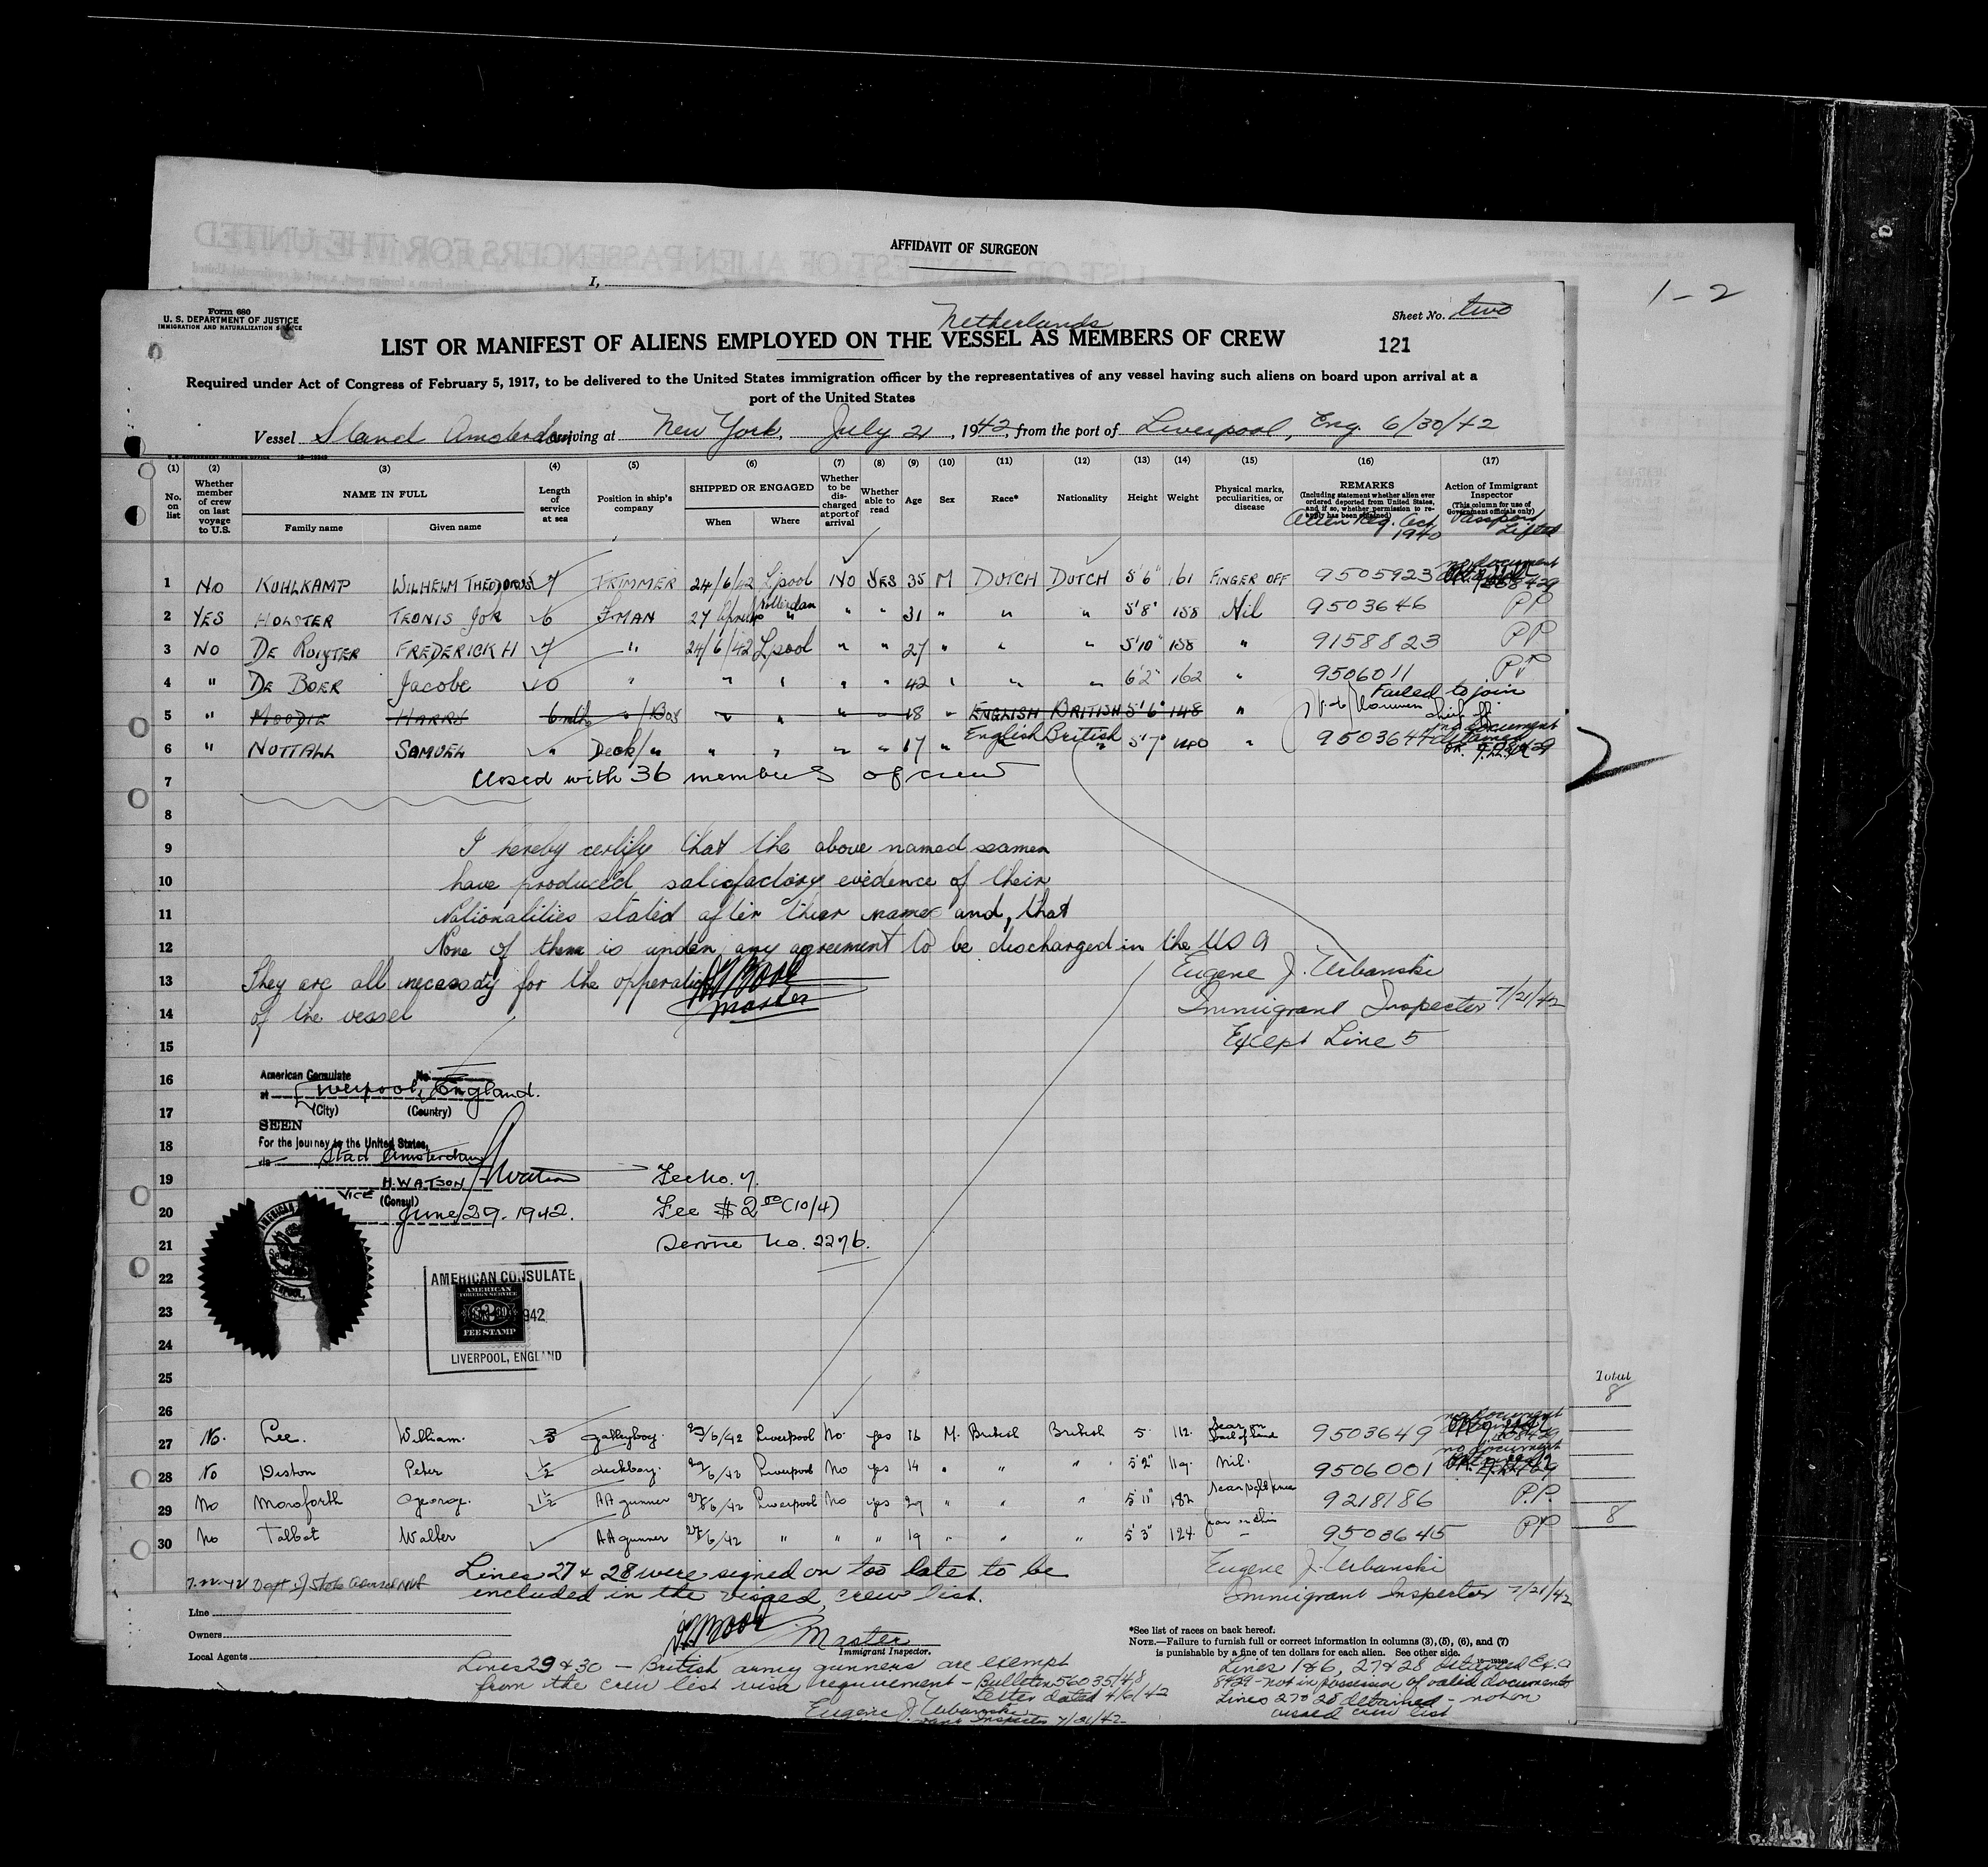 AFFIDAVIT OF SURGEON
I,
1-2
Form 680
U. S. DEPARTMENT OF JUSTICE
IMMIGRATION AND NATURALIZATION SERVICE
Netherlands
Sheet No. two
LIST OR MANIFEST OF ALIENS EMPLOYED ON THE VESSEL AS MEMBERS OF CREW
121
Required under Act of Congress of February 5, 1917, to be delivered to the United States immigration officer by the representatives of any vessel having such aliens on board upon arrival at a
port of the United States
Vessel Stand Amsterdam arriving at New York, July 21, 1942, from the port of Liverpool, Eng. 6/30/42
(1) (2) (3) (4) (5) (6) (7) (8) (9) (10) (11) (12) (13) (14) (15) (16) (17)
No. on list
Whether member of crew on last voyage to U.S.
NAME IN FULL
Family name Given name
Length of service at sea
Position in ship's company
SHIPPED OR ENGAGED
When Where
Whether to be discharged at port of arrival
Whether able to read
Age Sex Race* Nationality Height Weight
Physical marks, peculiarities, or disease
REMARKS
(Including statement whether alien ever ordered deported from United States, and if so, whether permission to reapply has been obtained)
Alien Reg. Act 1940
Action of Immigrant Inspector
(This column for use of Government officials only)
Passport Lifted
1 NO KUHLKAMP WILHELM THEODORUS 7 TRIMMER 24/6/42 L'pool NO YES 35 M DUTCH DUTCH 5'6" 161 FINGER OFF 9505923 no document
2 YES HOLSTER TEONIS JOR 6 F.MAN 27 Rotterdam " " 31 " " " 5'8" 158 Nil 9503646 PP
3 NO DE RUIJTER FREDERICK H 7 " 24/6/42 L'pool " " 27 " " " 5'10" 158 " 9158823 PP
4 " DE BOER Jacobe 10 " " " " " 42 " " " 6'2" 162 " 9506011 PP
5 " MOODIE HARRY 6 mths " /Boy " " " " 18 " ENGLISH BRITISH 5'6" 148 " Failed to join
6 " NUTTALL SAMUEL " Deck/" " " " " 17 " English British 5'7" 140 " 9503647 no document detained
7 Closed with 36 members of crew
2
8
9 I hereby certify that the above named seamen
10 have produced satisfactory evidence of their
11 Nationalities stated after their names and, that
12 None of them is under any agreement to be discharged in the USA
13 They are all necessary for the opperation
14 of the vessel
Master
Eugene J. Urbanski
Immigrant Inspector 7/21/42
Except Line 5
15
16 American Consulate No.
at Liverpool, England.
17 (City) (Country)
SEEN
18 For the journey to the United States,
via Stad Amsterdam
19 H. WATSON HWatson
VICE (Consul)
20 June 29. 1942.
Fee No. 7.
Fee $2.00 (10/4)
21 Service No. 2276.
22 AMERICAN CONSULATE
AMERICAN
FOREIGN SERVICE
23 942
FEE STAMP
24 LIVERPOOL, ENGLAND
25
26
Total
8
27 No. Lee. William. 3 galleyboy. /6/42 Liverpool No. yes 16 M. British British 5 112. 9503649 no document
28 No Diston Peter 1/2 deckboy. Liverpool No yes 14 " " " 5'2" 119. Nil. 9506001 no document
29 No Monsforth George. 1 1/2 AA gunner /6/42 Liverpool No yes 27 " " " 5'11" 182 9218186 P.P.
30 No Talbot Walter AA gunner /6/42 " " " 19 " " " 5'3" 124 9503645 PP
8
Lines 27 & 28 were signed on too late to be
included in the visaed, crew list.
Eugene J. Urbanski
Immigrant Inspector 7/21/42
Line
Owners
Local Agents
Master
Immigrant Inspector.
*See list of races on back hereof.
NOTE.—Failure to furnish full or correct information in columns (3), (5), (6), and (7)
is punishable by a fine of ten dollars for each alien. See other side.
Lines 29 & 30 – British army gunners are exempt
from the crew list visa requirement – Bulletin 56035/48
Letter dated 4/6/42
Eugene J. Urbanski
Inspector 7/21/42
Lines 1&6, 27&28 detained E.O.
8429 – not in possession of valid documents
Lines 27 & 28 detained – not on
visaed crew list